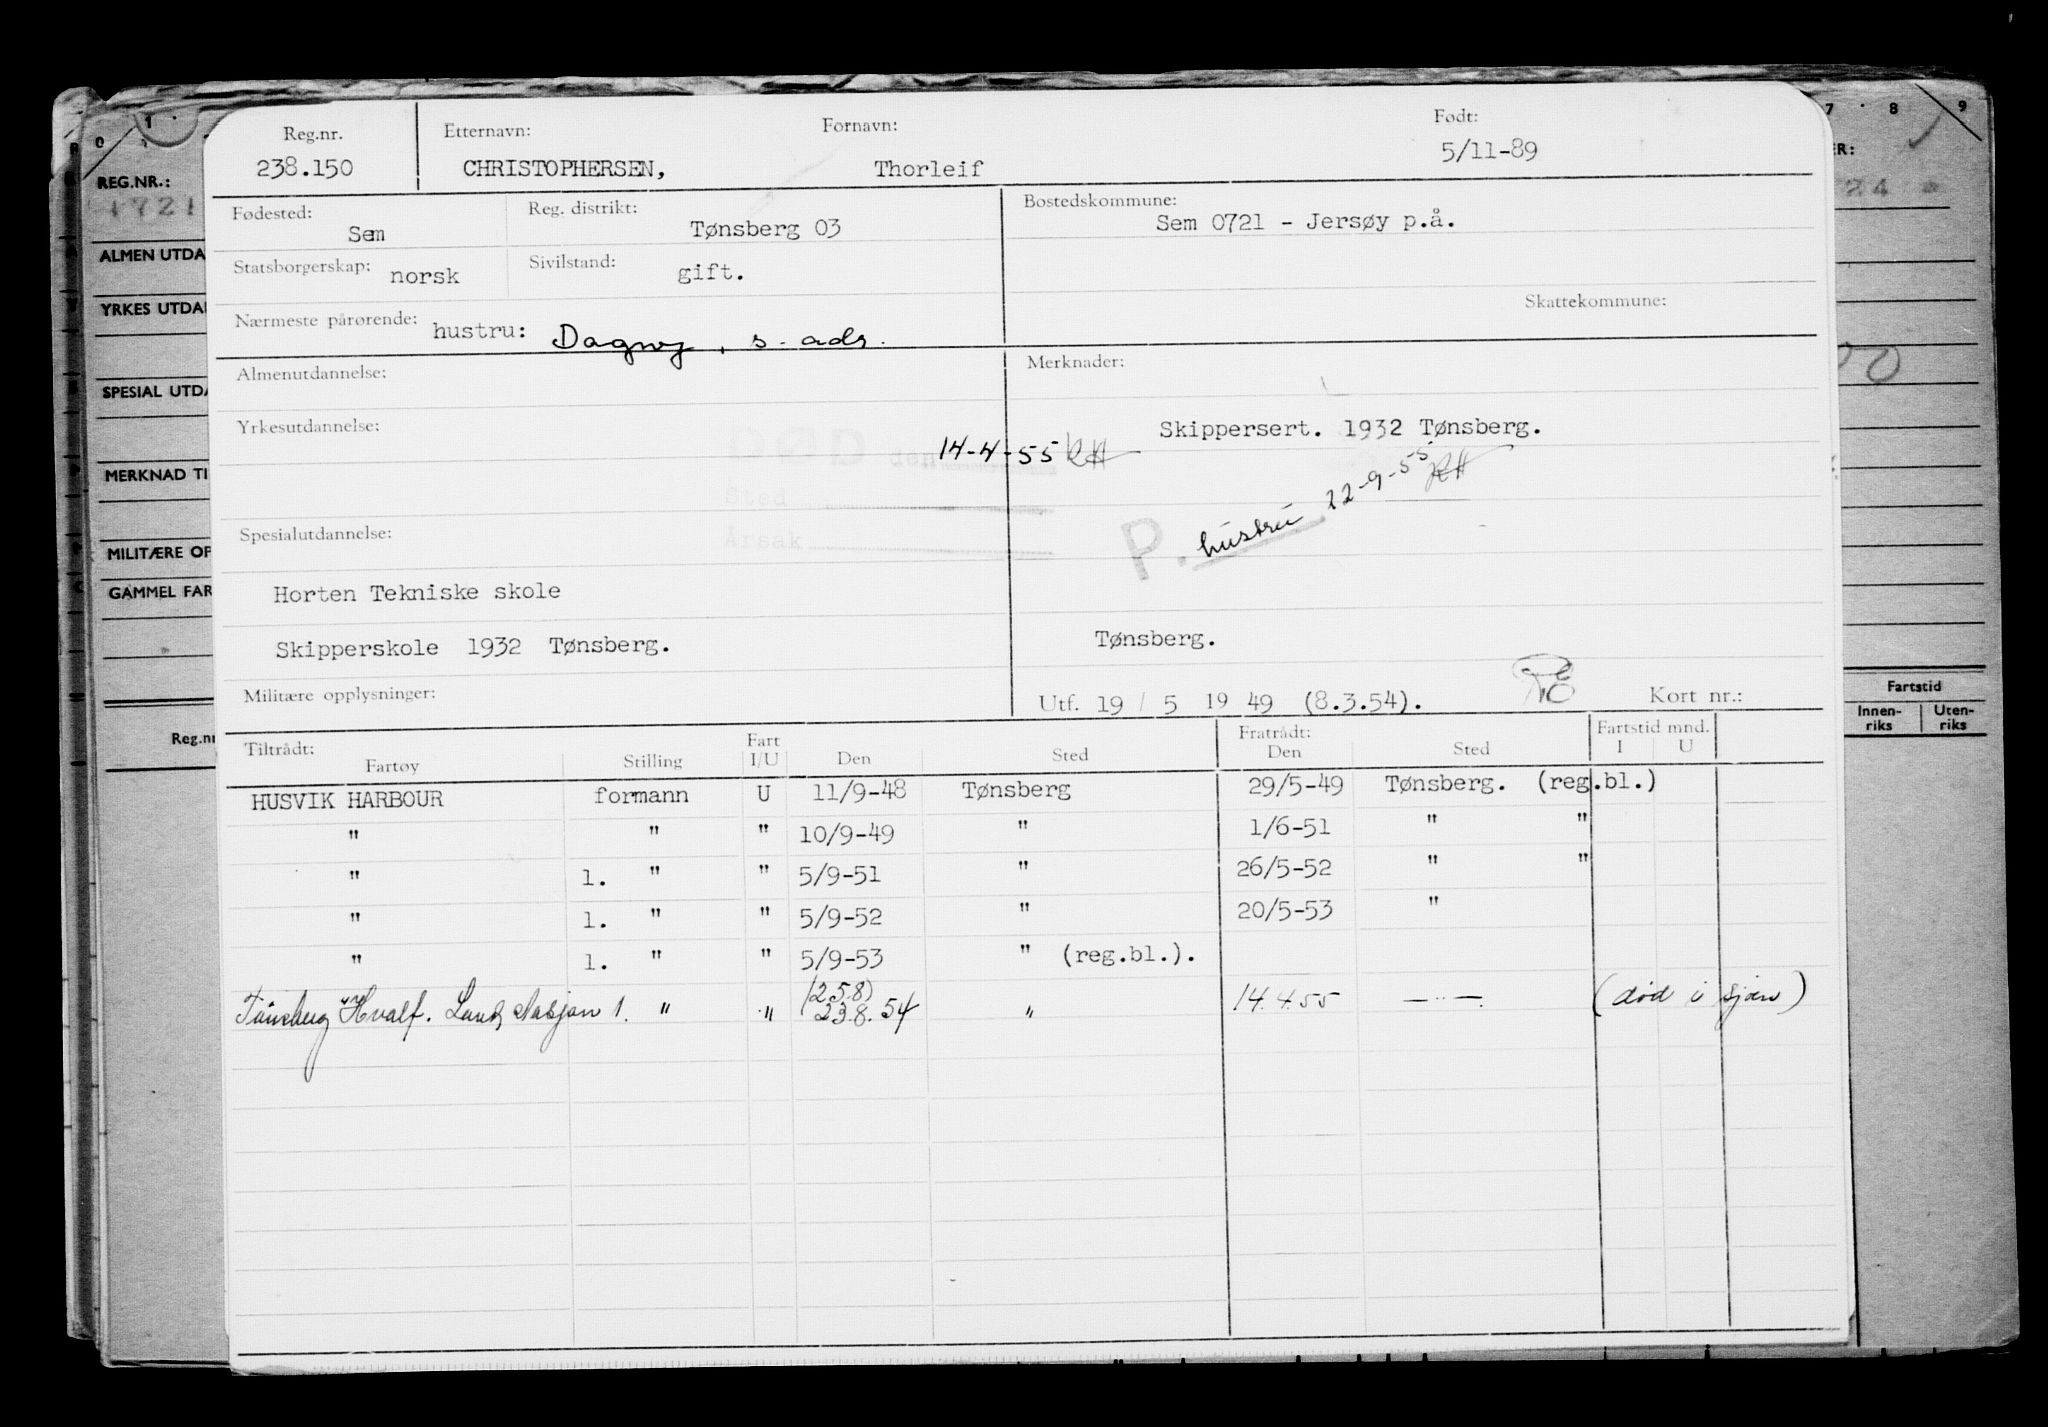 Reg.nr. Etternavn: Fornavn: Født:
238.150 CHRISTOPHERSEN, Thorleif 5/11-89
Fødested: Sem Reg. distrikt: Tønsberg 03 Bostedskommune: Sem 0721 - Jersøy p.å.
Statsborgerskap: norsk Sivilstand: gift.
Skattekommune:
Nærmeste pårørende: hustru: Dagny, s. adr.
Almenutdannelse: Merknader:
Yrkesutdannelse: Skippersert. 1932 Tønsberg.
DØD den 14-4-55 RH
Sted
Årsak
P. hustru 22-9-55 RH
Spesialutdannelse:
Horten Tekniske skole
Skipperskole 1932 Tønsberg. Tønsberg.
Militære opplysninger: Utf. 19 / 5 19 49 (8.3.54). Kort nr.:
Tiltrådt: Fratrådt: Fartstid mnd.
Fartøy Stilling Fart I/U Den Sted Den Sted I U
HUSVIK HARBOUR formann U 11/9-48 Tønsberg 29/5-49 Tønsberg. (reg.bl.)
" " " 10/9-49 " 1/6-51 " "
" 1. " " 5/9-51 " 26/5-52 " "
" 1. " " 5/9-52 " 20/5-53 "
" 1. " " 5/9-53 " (reg.bl.).
(25.8)
Tønsberg Hvalf. Land stasjon 1. " " 23.8.54 " 14.4.55 —"— (død i sjøen)
0 1 7 8 9
REG.NR.:
ALMEN UTDA
YRKES UTDA
SPESIAL UTDA
MERKNAD TI
MILITÆRE OP
GAMMEL FAR
Reg.nr
ER:
24
Fartstid
Innen-riks Uten-riks